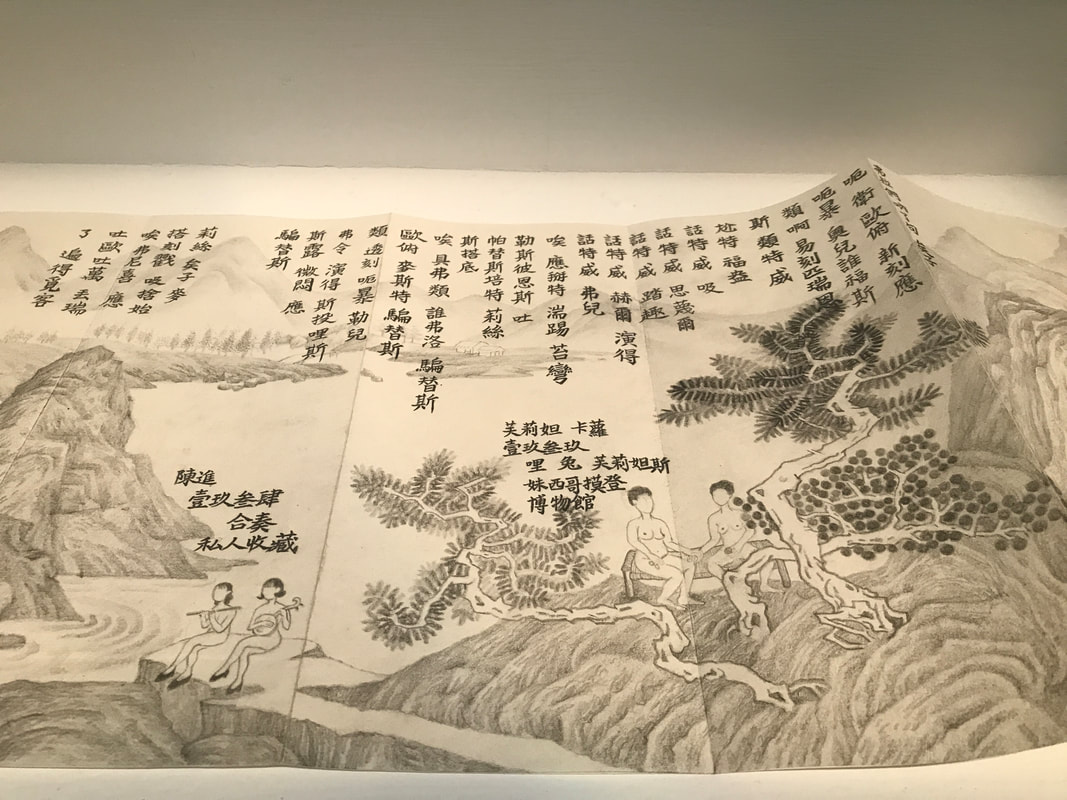 呃 衛 歐俯 新刻應
呃暴 與兒誰福斯
類啊易刻匹瑞恩
斯 類特 威
特福盎
話特威 吸
話特威 思蔓爾
話特威 踏趣
話特威 赫爾 演得
話特威 弗兒
唉 應掰特 湍踢 苔彎
勒斯彼恩斯 吐
帕替斯培特 莉絲
斯搭底
唉 具弗類 誰弗洛 騙替斯
歐俯 麥斯特 騙替斯
類逵刻 呃暴 勒兒
弗令 演得 斯探哩斯
斯露 微悶 應
騙替斯
莉絲 矣子 麥
搭刻戳 吸捨始
唉 弗尼喜 應
吐歐 吐萬 丟瑞
了 遍得覓客
芙莉妲 卡蘿
壹玖叁玖
哩 兔 芙莉妲斯
妹西哥摸登
博物館
陳進
壹玖叁肆
合奏
私人收藏